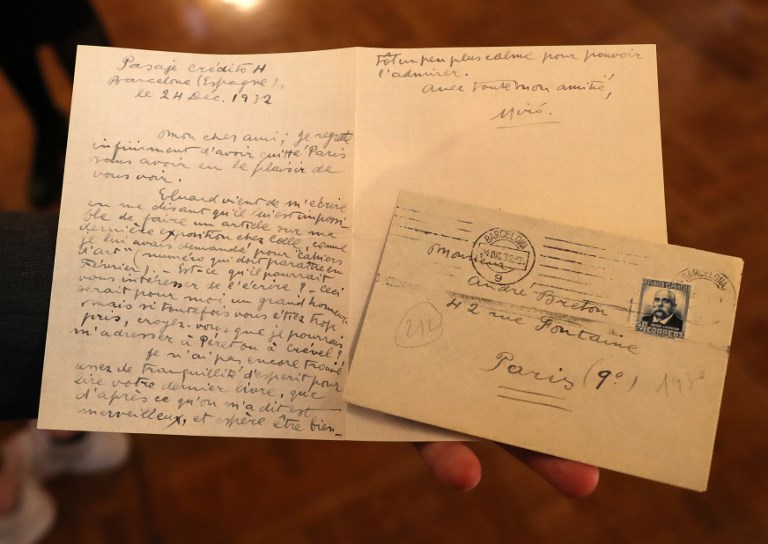 Pasaje Crédito 4
Barcelone (Espagne),
le 24 Déc. 1932
Mon cher ami; je regrette
infiniment d'avoir quitté Paris
sans avoir eu le plaisir de
vous voir.
Eluard vient de m'écrire
en me disant qu'il lui est impossi-
ble de faire un article sur ma
dernière exposition chez Colle, comme
je lui avais demandé pour "Cahiers
d'art" (numéro qui doit paraître en
Février). - Est-ce qu'il pourrait
vous intéresser de l'écrire? - Ceci
serait pour moi un grand honneur.
mais si toutefois vous êtez trop
pris, croyez-vous que je pourrais
m'adresser à Péret ou à Crevel?
Je n'ai pas encore trouvé
assez de tranquillité d'esprit pour
lire votre dernier livre, que
d'après ce qu'on m'a dit est
merveilleux, et espère être bien-
tôt un peu plus calme pour pouvoir
l'admirer.
Avec toute mon amitié,
Miró.
BARCELONA
9
BARCELONA
Monsieur
André Breton
42 rue Fontaine
Paris (9e)
212
REPUBLICA ESPAÑOLA
CORREOS